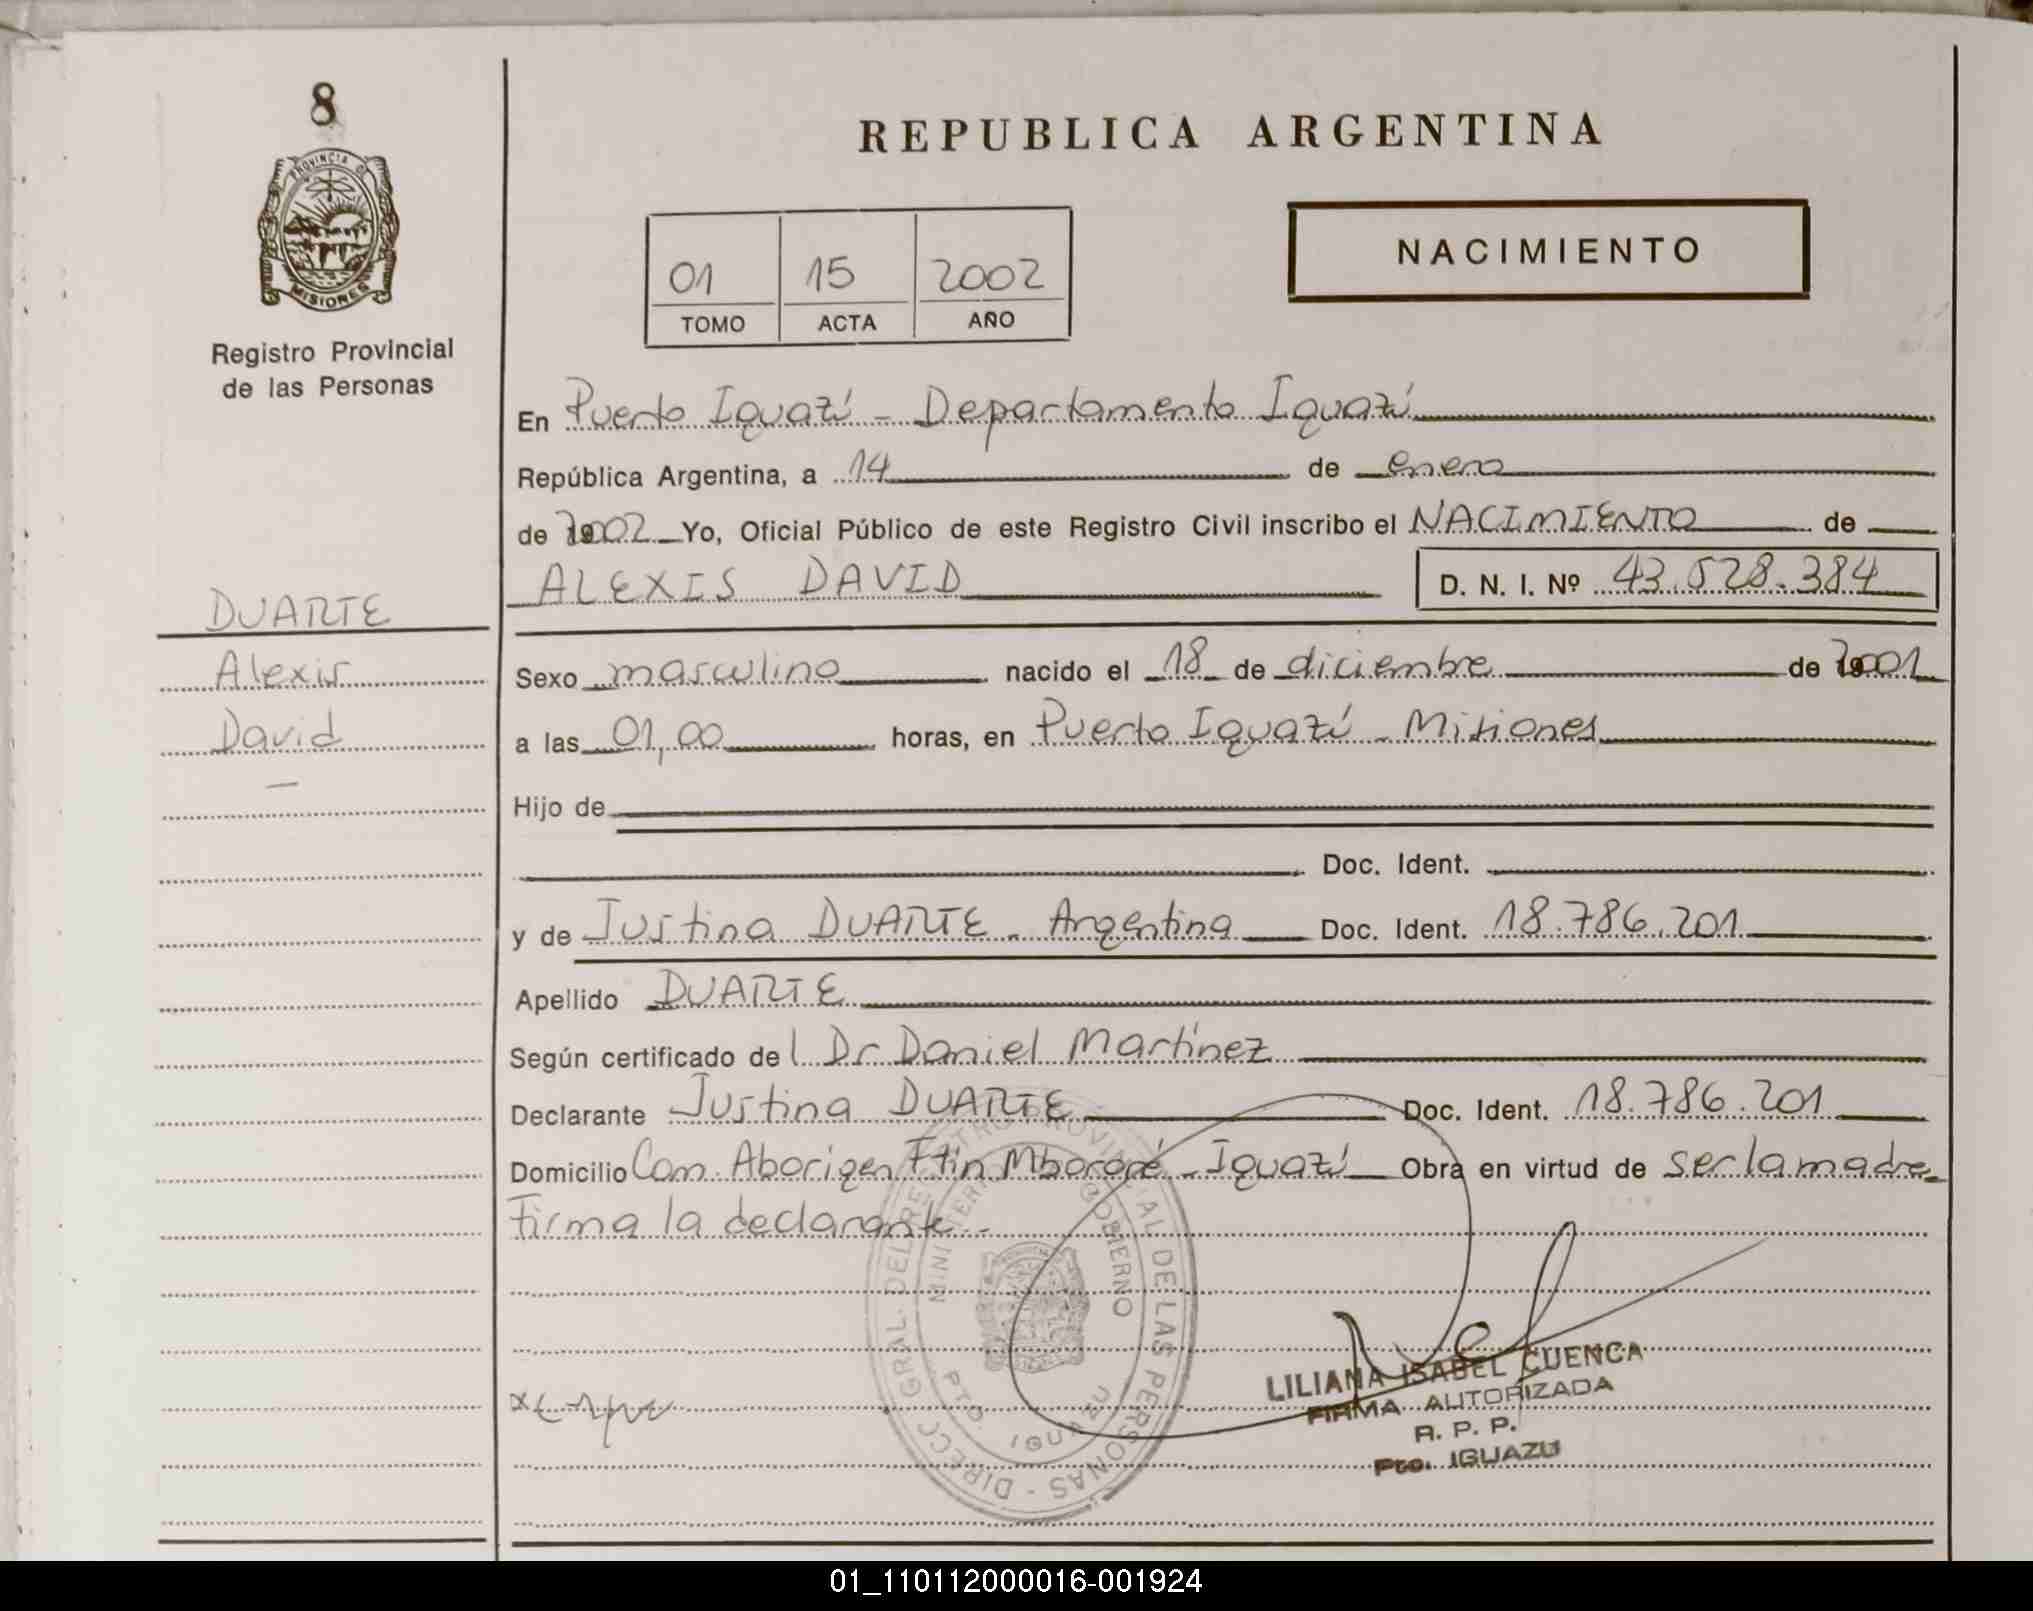 8
PROVINCIA DE
MISIONES
Registro Provincial
de las Personas
DUARTE
Alexis
David
REPUBLICA ARGENTINA
01 15 2002
TOMO ACTA AÑO
NACIMIENTO
En Puerto Iguazú - Departamento Iguazú
República Argentina, a 14 de enero
de 2002 Yo, Oficial Público de este Registro Civil inscribo el NACIMIENTO de
ALEXIS DAVID D. N. I. Nº 43.528.384
Sexo masculino nacido el 18 de diciembre de 2001
a las 01,00 horas, en Puerto Iguazú - Misiones
Hijo de
Doc. Ident.
y de Justina DUARTE - Argentina Doc. Ident. 18.786.201
Apellido DUARTE
Según certificado del Dr Daniel Martínez
Declarante Justina DUARTE Doc. Ident. 18.786.201
Domicilio Com. Aborigen Ftin Mbororé - Iguazú Obra en virtud de ser la madre
Firma la declarante.-
DIRECC. GRAL. DEL REGISTRO PROVINCIAL DE LAS PERSONAS -
MINISTERIO GOBIERNO
PTO. IGUAZU
LILIANA ISABEL CUENCA
FIRMA AUTORIZADA
R. P. P.
Pto. IGUAZU
01_110112000016-001924